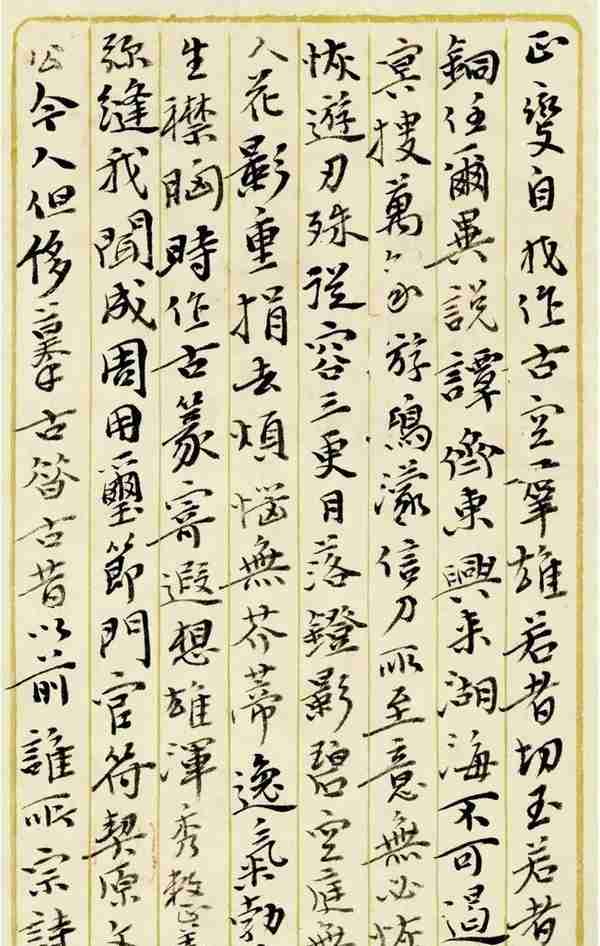 正變自我作古空羣雄若者切玉若者
銅任爾異說譚齊東興來湖海不可遏
冥搜萬象游鴻濛信刀所至意無必恢
恢遊刃殊從容三更月落鐙影碧空庭無
人花影重捐去煩惱無芥蒂逸氣勃
生襟胸時作古篆寄遐想雄渾秀整羞
彌縫我聞成周用璽節門官符契原文
公今人但侈摹古昔古昔以前誰所宗詩